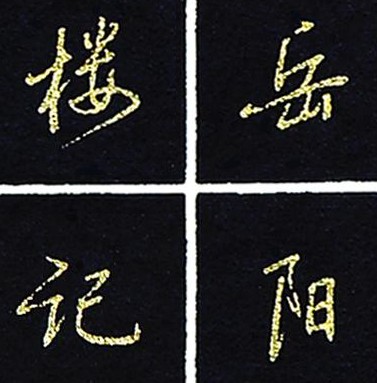 岳阳
楼记